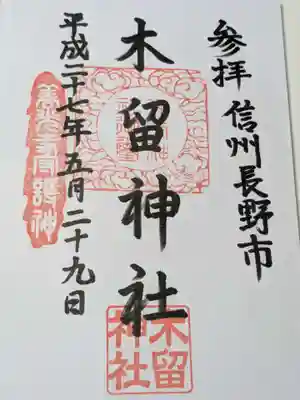 参拝 信州長野市
木留神社
平成二十七年五月二十九日
木留
神社